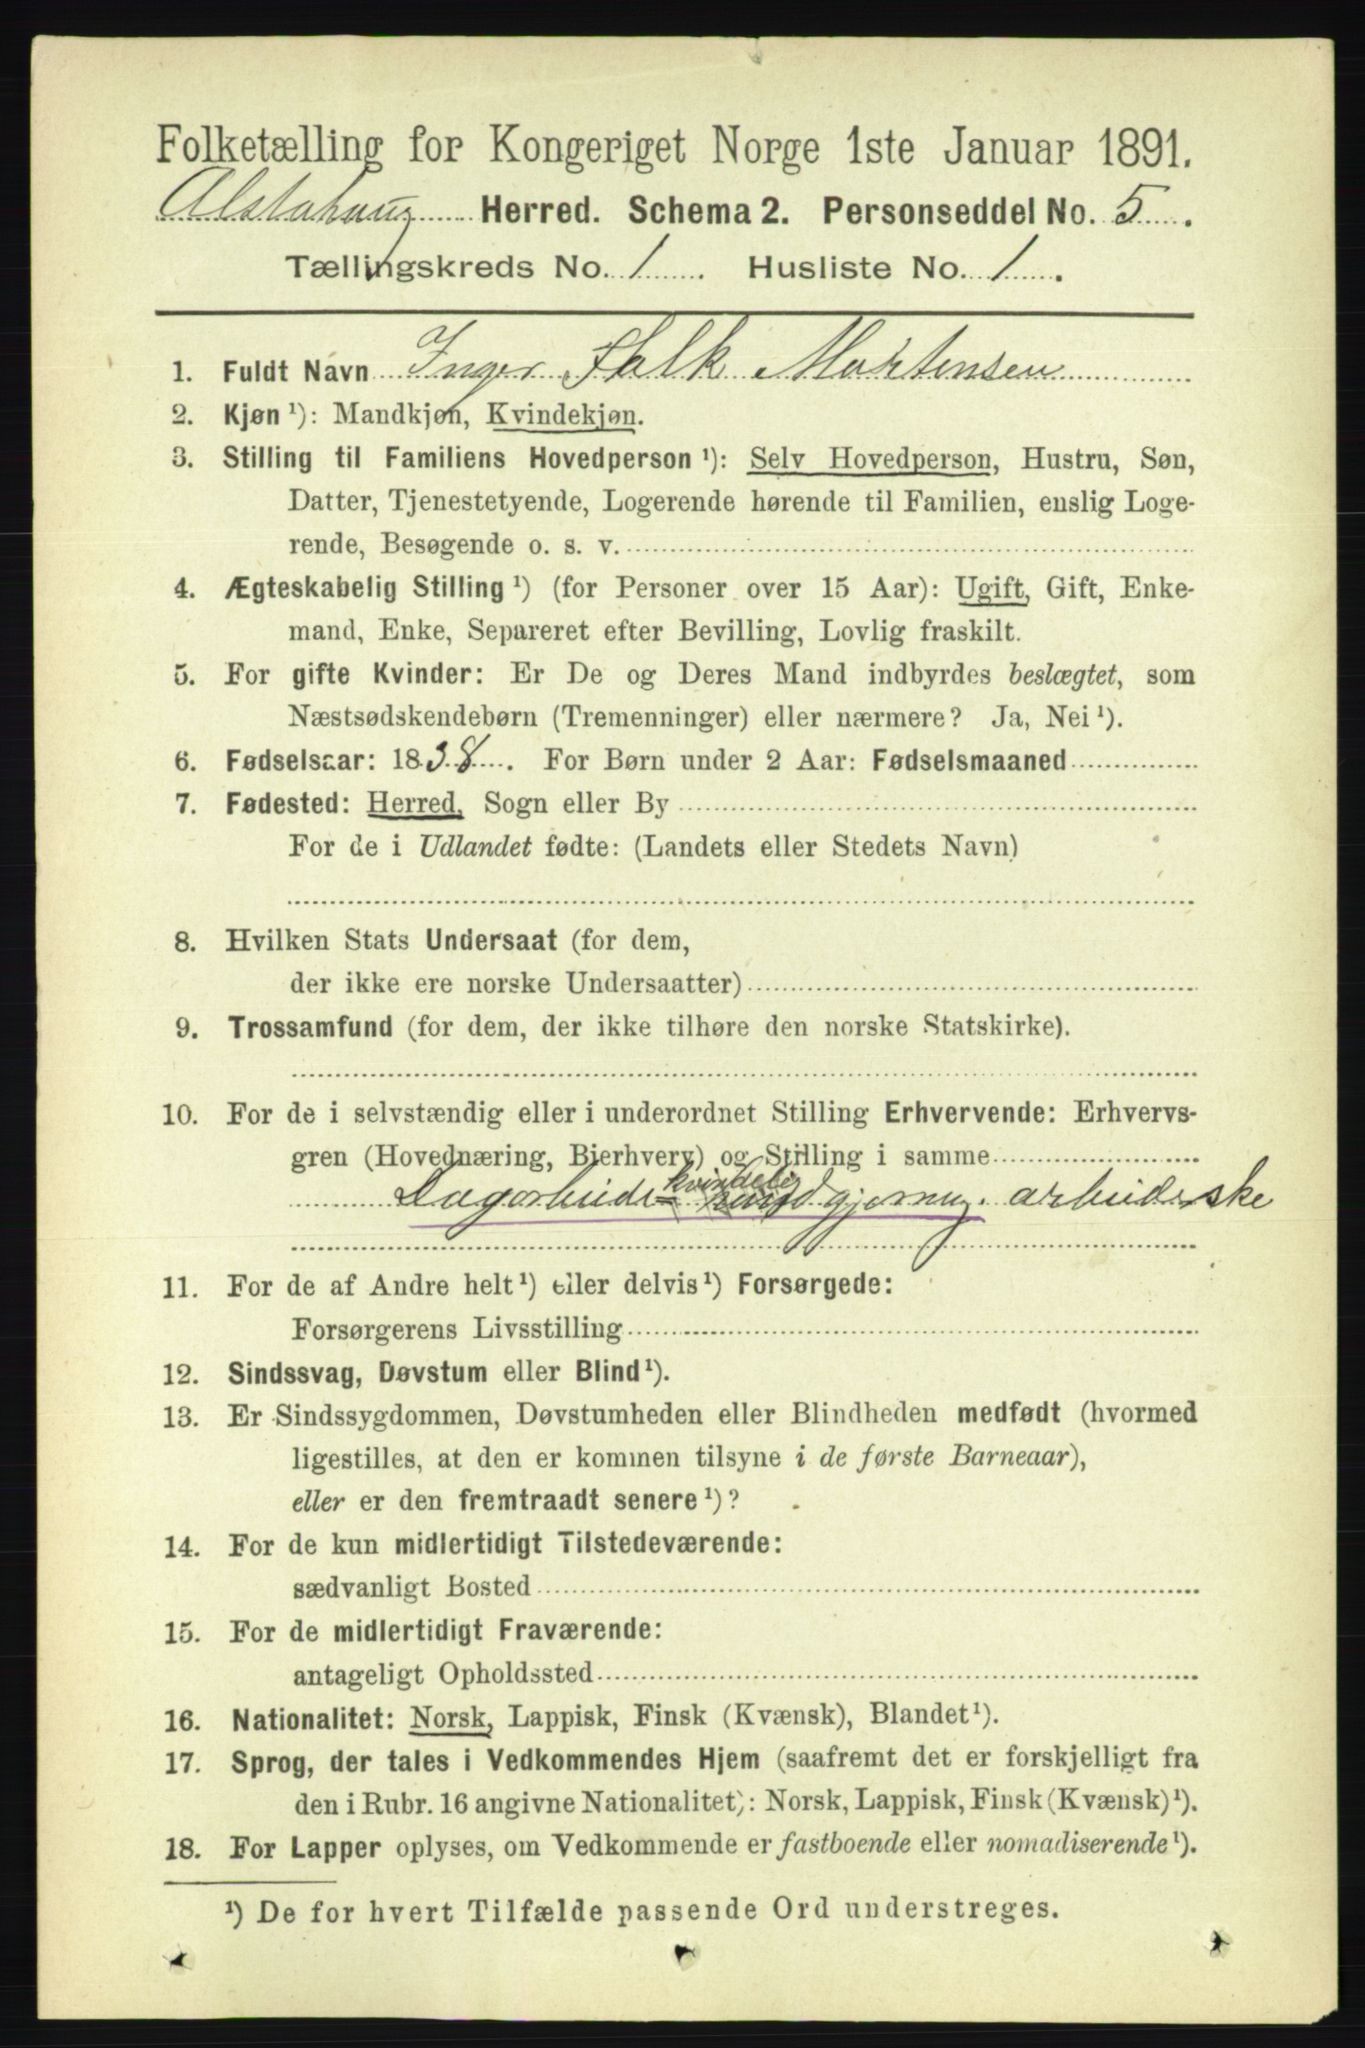 Folketælling for Kongeriget Norge 1ste Januar 1891.
Alstahaug Herred. Schema 2. Personseddel No. 5.
Tællingskreds No. 1 Husliste No. 1.
1. Fuldt Navn Inger Falk Mortensen
2. Kjøn ¹): Mandkjøn, Kvindekjøn.
3. Stilling til Familiens Hovedperson ¹): Selv Hovedperson, Hustru, Søn,
Datter, Tjenestetyende, Logerende hørende til Familien, enslig Loge-
rende, Besøgende o. s. v.
4. Ægteskabelig Stilling ¹) (for Personer over 15 Aar): Ugift, Gift, Enke-
mand, Enke, Separeret efter Bevilling, Lovlig fraskilt.
5. For gifte Kvinder: Er De og Deres Mand indbyrdes beslægtet, som
Næstsødskendebørn (Tremenninger) eller nærmere? Ja, Nei ¹).
6. Fødselsaar: 1838. For Børn under 2 Aar: Fødselsmaaned
7. Fødested: Herred, Sogn eller By
For de i Udlandet fødte: (Landets eller Stedets Navn)
8. Hvilken Stats Undersaat (for dem,
der ikke ere norske Undersaatter)
9. Trossamfund (for dem, der ikke tilhøre den norske Statskirke).
10. For de i selvstændig eller i underordnet Stilling Erhvervende: Erhvervs-
gren (Hovednæring, Bierhverv) og Stilling i samme
kvindelig
Dagarbeide= haandgjerning. arbeiderske
11. For de af Andre helt ¹) eller delvis ¹) Forsørgede:
Forsørgerens Livsstilling
12. Sindssvag, Døvstum eller Blind ¹).
13. Er Sindssygdommen, Døvstumheden eller Blindheden medfødt (hvormed
ligestilles, at den er kommen tilsyne i de første Barneaar),
eller er den fremtraadt senere ¹)?
14. For de kun midlertidigt Tilstedeværende:
sædvanligt Bosted
15. For de midlertidigt Fraværende:
antageligt Opholdssted
16. Nationalitet: Norsk, Lappisk, Finsk (Kvænsk), Blandet ¹).
17. Sprog, der tales i Vedkommendes Hjem (saafremt det er forskjelligt fra
den i Rubr. 16 angivne Nationalitet): Norsk, Lappisk, Finsk (Kvænsk) ¹).
18. For Lapper oplyses, om Vedkommende er fastboende eller nomadiserende ¹).
¹) De for hvert Tilfælde passende Ord understreges.